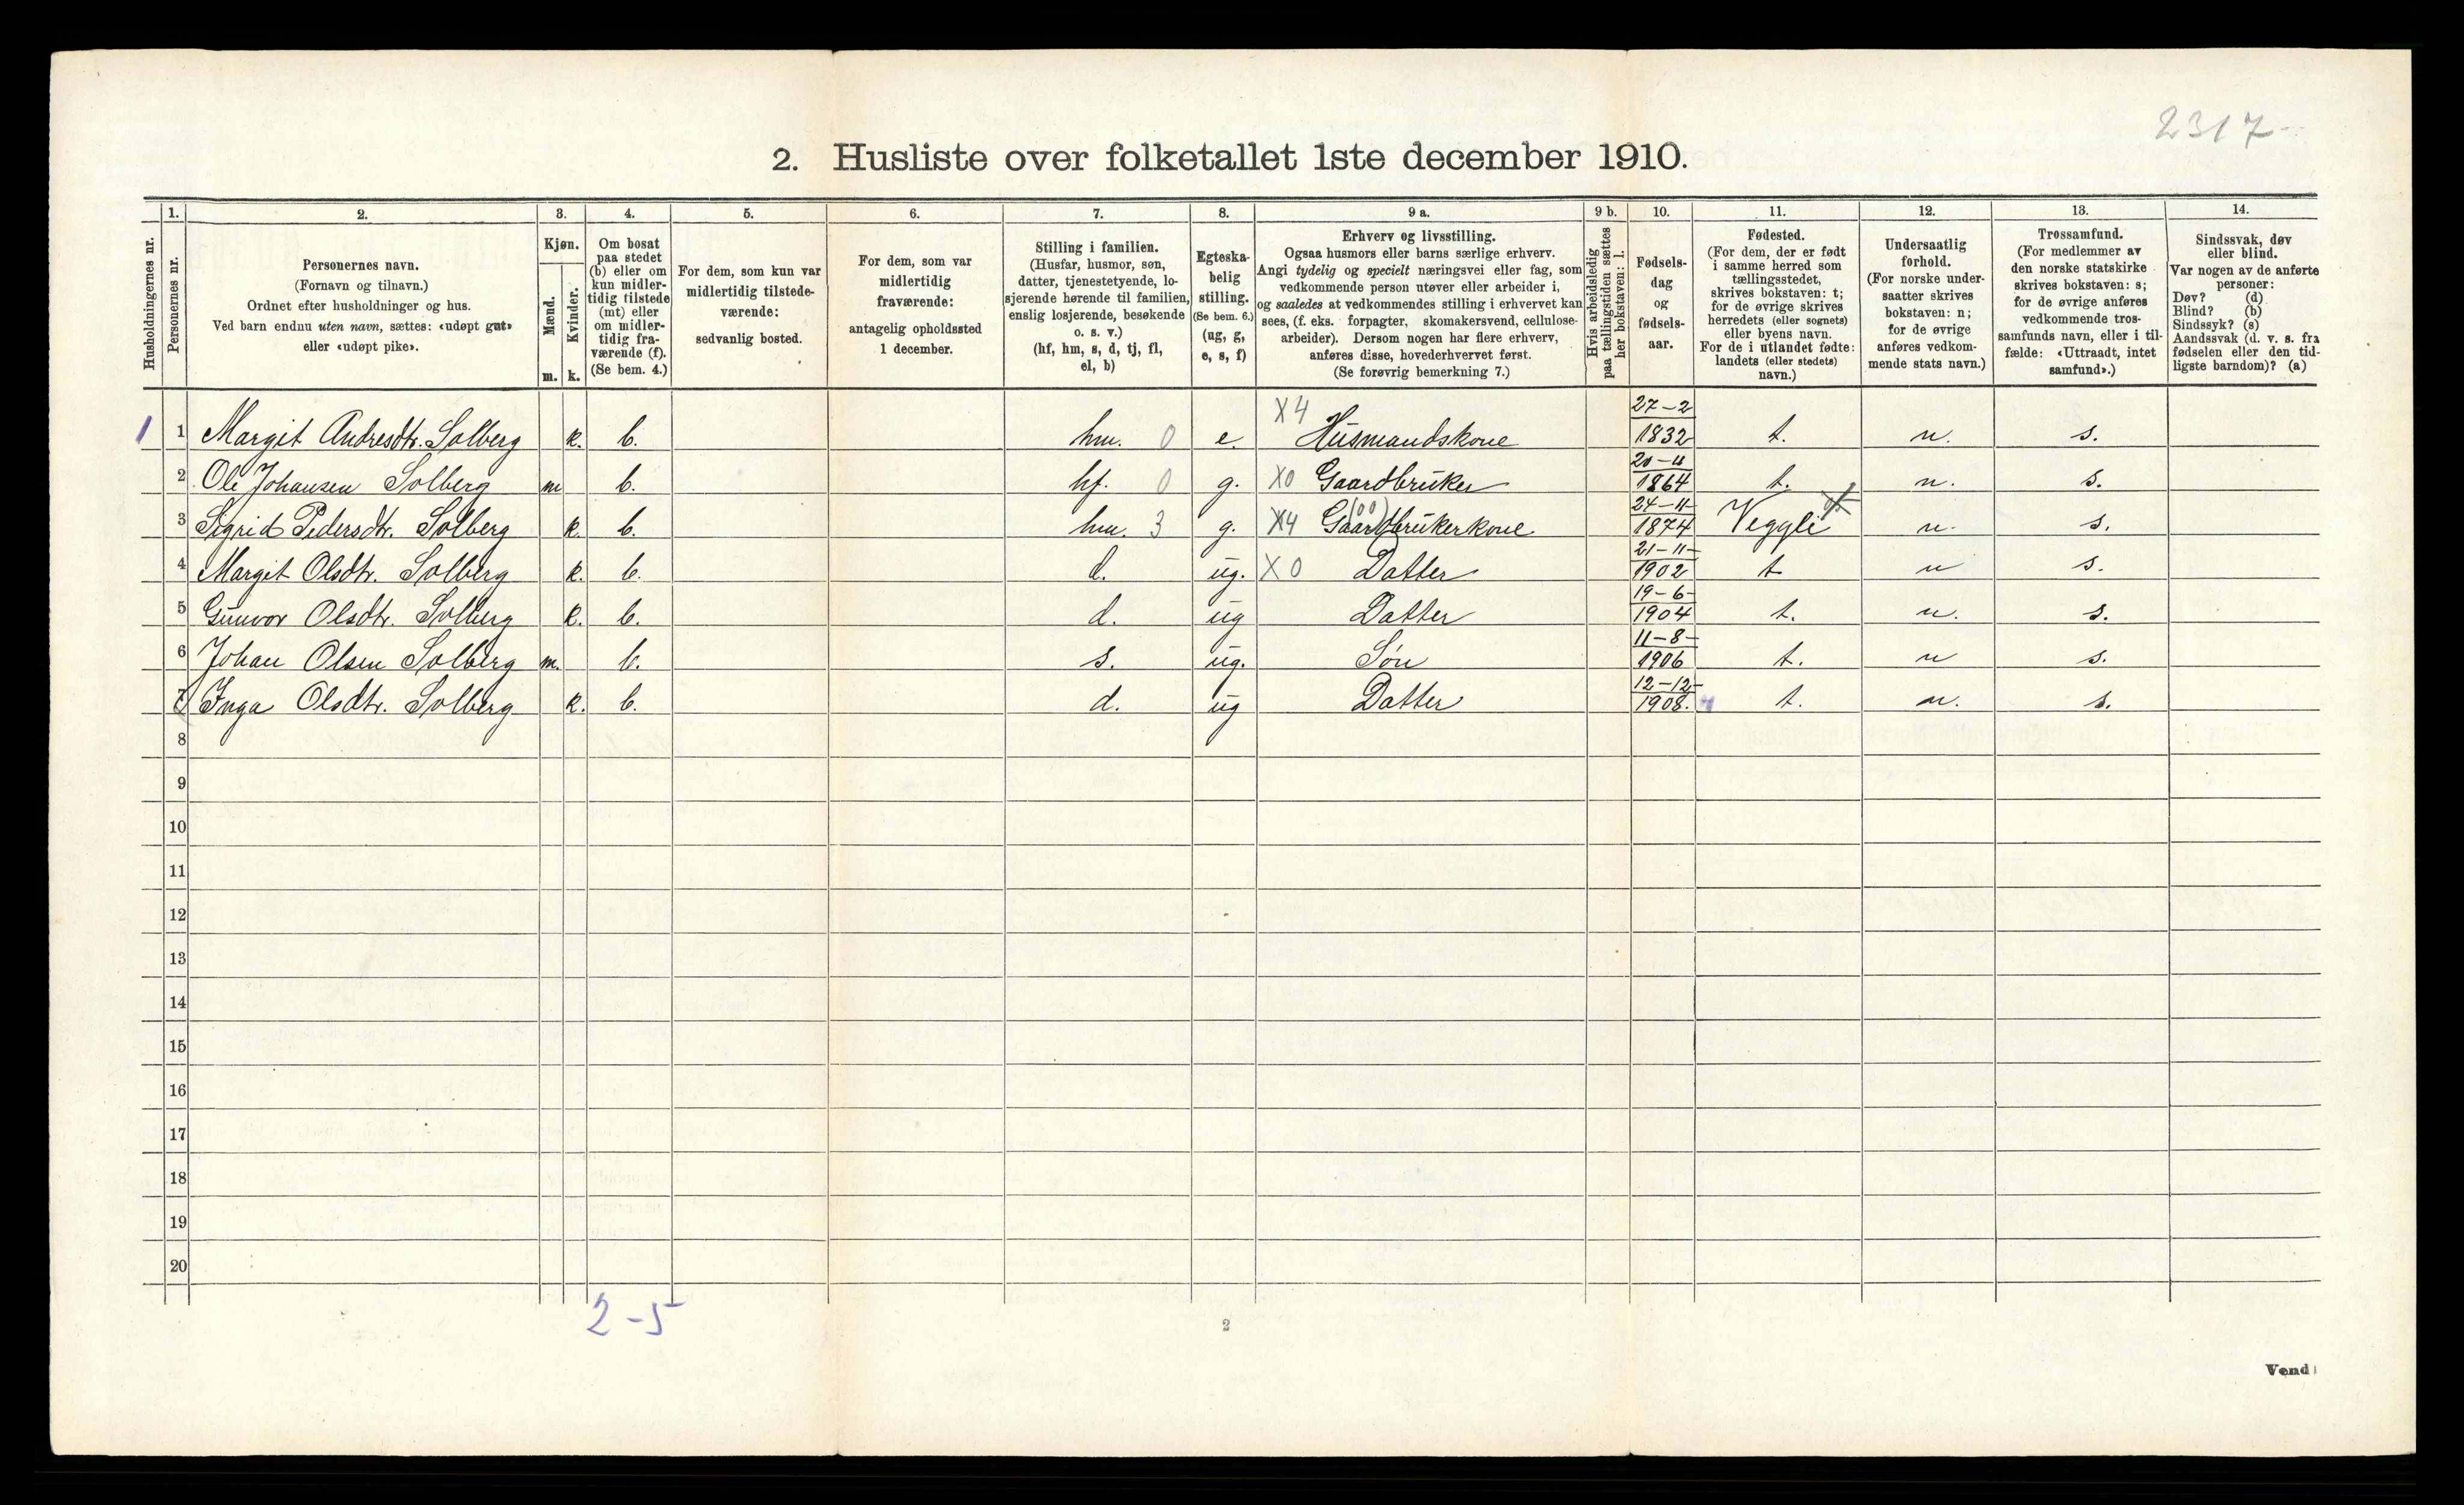 2317-
2. Husliste over folketallet 1ste december 1910.
Husholdningernes nr.
1.
Personernes nr.
2.
Personernes navn.
(Fornavn og tilnavn.)
Ordnet efter husholdninger og hus.
Ved barn endnu uten navn, sættes: «udøpt gut»
eller «udøpt pike».
3.
Kjøn.
Mænd.
Kvinder.
m. k.
4.
Om bosat
paa stedet
(b) eller om
kun midler-
tidig tilstede
(mt) eller
om midler-
tidig fra-
værende (f).
(Se bem. 4.)
5.
For dem, som kun var
midlertidig tilstede-
værende:
sedvanlig bosted.
6.
For dem, som var
midlertidig
fraværende:
antagelig opholdssted
1 december.
7.
Stilling i familien.
(Husfar, husmor, søn,
datter, tjenestetyende, lo-
sjerende hørende til familien,
enslig losjerende, besøkende
o. s. v.)
(hf, hm, s, d, tj, fl,
el, b)
8.
Egteska-
belig
stilling.
(Se bem. 6.)
(ug, g,
e, s, f)
9 a.
Erhverv og livsstilling.
Ogsaa husmors eller barns særlige erhverv.
Angi tydelig og specielt næringsvei eller fag, som
vedkommende person utøver eller arbeider i,
og saaledes at vedkommendes stilling i erhvervet kan
sees, (f. eks. forpagter, skomakersvend, cellulose-
arbeider). Dersom nogen har flere erhverv,
anføres disse, hovederhvervet først.
(Se forøvrig bemerkning 7.)
9 b.
Hvis arbeidsledig
paa tællingstiden sættes
her bokstaven: l.
10.
Fødsels-
dag
og
fødsels-
aar.
11.
Fødested.
(For dem, der er født
i samme herred som
tællingsstedet,
skrives bokstaven: t;
for de øvrige skrives
herredets (eller sognets)
eller byens navn.
For de i utlandet fødte:
landets (eller stedets)
navn.)
12.
Undersaatlig
forhold.
(For norske under-
saatter skrives
bokstaven: n;
for de øvrige
anføres vedkom-
mende stats navn.)
13.
Trossamfund.
(For medlemmer av
den norske statskirke
skrives bokstaven: s;
for de øvrige anføres
vedkommende tros-
samfunds navn, eller i til-
fælde: «Uttraadt, intet
samfund».)
14.
Sindssvak, døv
eller blind.
Var nogen av de anførte
personer:
Døv? (d)
Blind? (b)
Sindssyk? (s)
Aandssvak (d. v. s. fra
fødselen eller den tid-
ligste barndom)? (a)
1 1 Margit Andresdtr. Solberg k. b. hm. 0 e. X4 Husmandskone 27-2 1832 t. n. s.
2 Ole Johansen Solberg m b. hf. 0 g. X0 Gaardbruker 20-11 1864 t. n. s.
3 Sigrid Pedersdtr. Solberg k. b. hm. 3 g. X4 Gaardbrukerkone (00) 24-11- 1874 Veggli n. s.
4 Margit Olsdtr. Solberg k. b. d. ug. X0 Datter 21-11- 1902 t n s.
5 Gunvor Olsdtr. Solberg k. b. d. ug Datter 19-6- 1904 t. n. s.
6 Johan Olsen Solberg m. b. s. ug. Søn 11-8- 1906 t. n s.
7 Inga Olsdtr. Solberg k. b. d. ug Datter 12-12- 1908. t. n. s.
8
9
10
11
12
13
14
15
16
17
18
19
20
2-5
2
Vend